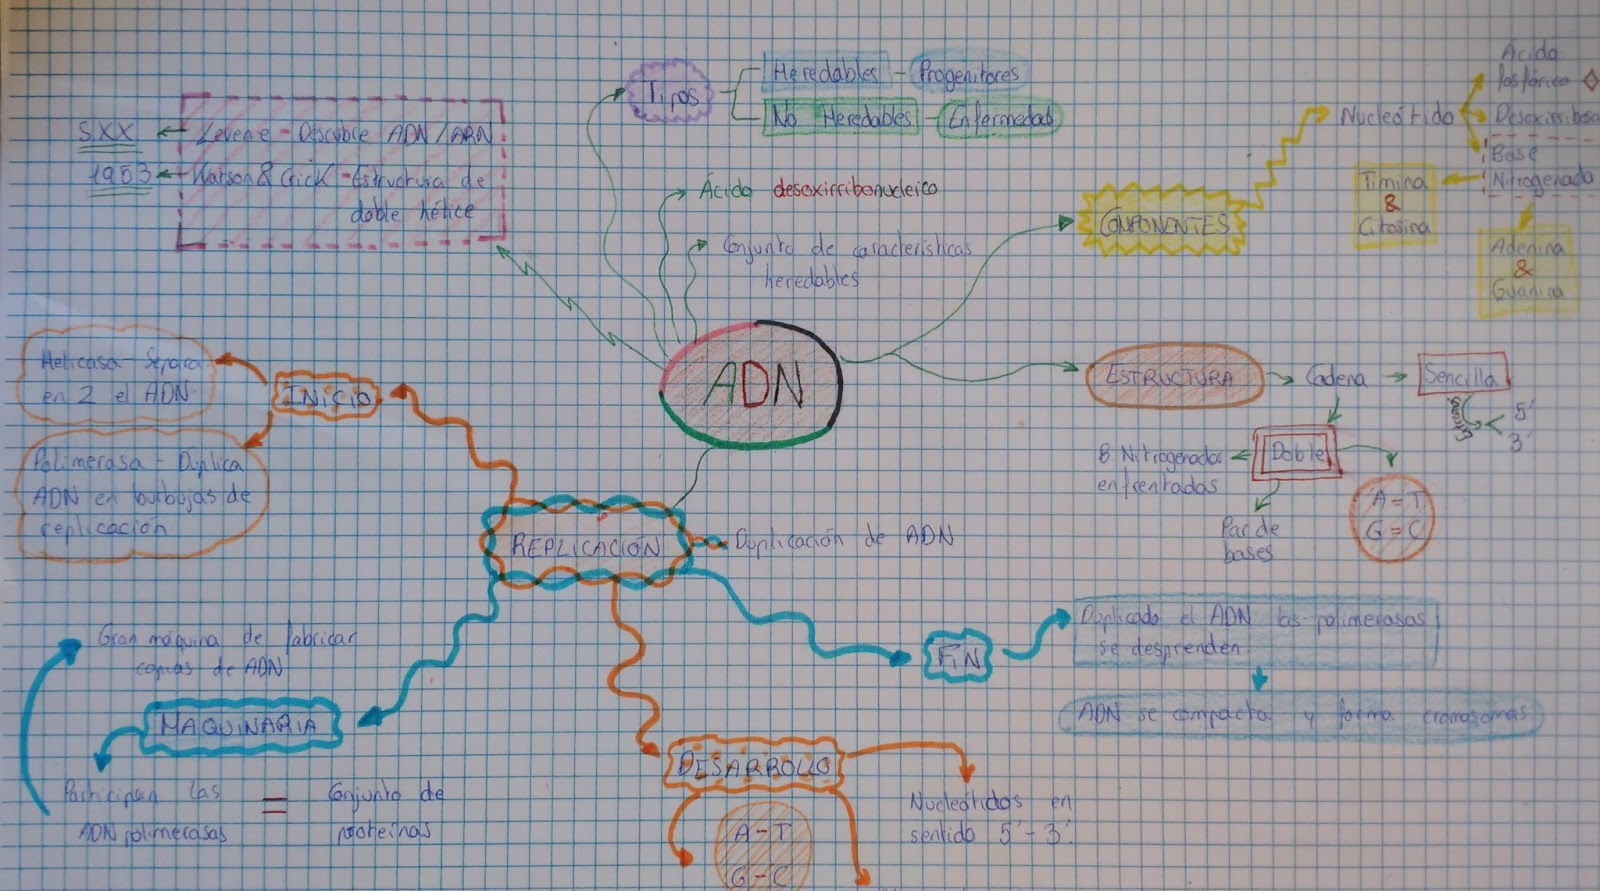 Tipos
Heredables - Progenitores
No Heredables - Enfermedad
SXX
Levene - Descubre ADN/ARN
1953
Watson & Crick - Estructura de
doble hélice
Ácido desoxirribonucleico
Conjunto de características
heredables
COMPONENTES
Nucleótido
Ácido
fosfórico
Desoxirribosa
Base
Nitrogenada
Timina
&
Citosina
Adenina
&
Guanina
ADN
ESTRUCTURA
Cadena
Sencilla
5'
3'
Doble
B Nitrogenadas
enfrentadas
Par de
bases
A = T
G = C
INICIO
Helicasa - Separa
en 2 el ADN.
Polimerasa - Duplica
ADN en burbujas de
replicación
REPLICACIÓN
Duplicación de ADN
FIN
Duplicado el ADN las polimerasas
se desprenden
ADN se compacta y forma cromosomas
MAQUINARIA
Gran máquina de fabricar
copias de ADN
Participan las
ADN polimerasas
=
Conjunto de
proteínas
DESARROLLO
A - T
G - C
Nucleótidos en
sentido 5' - 3'.